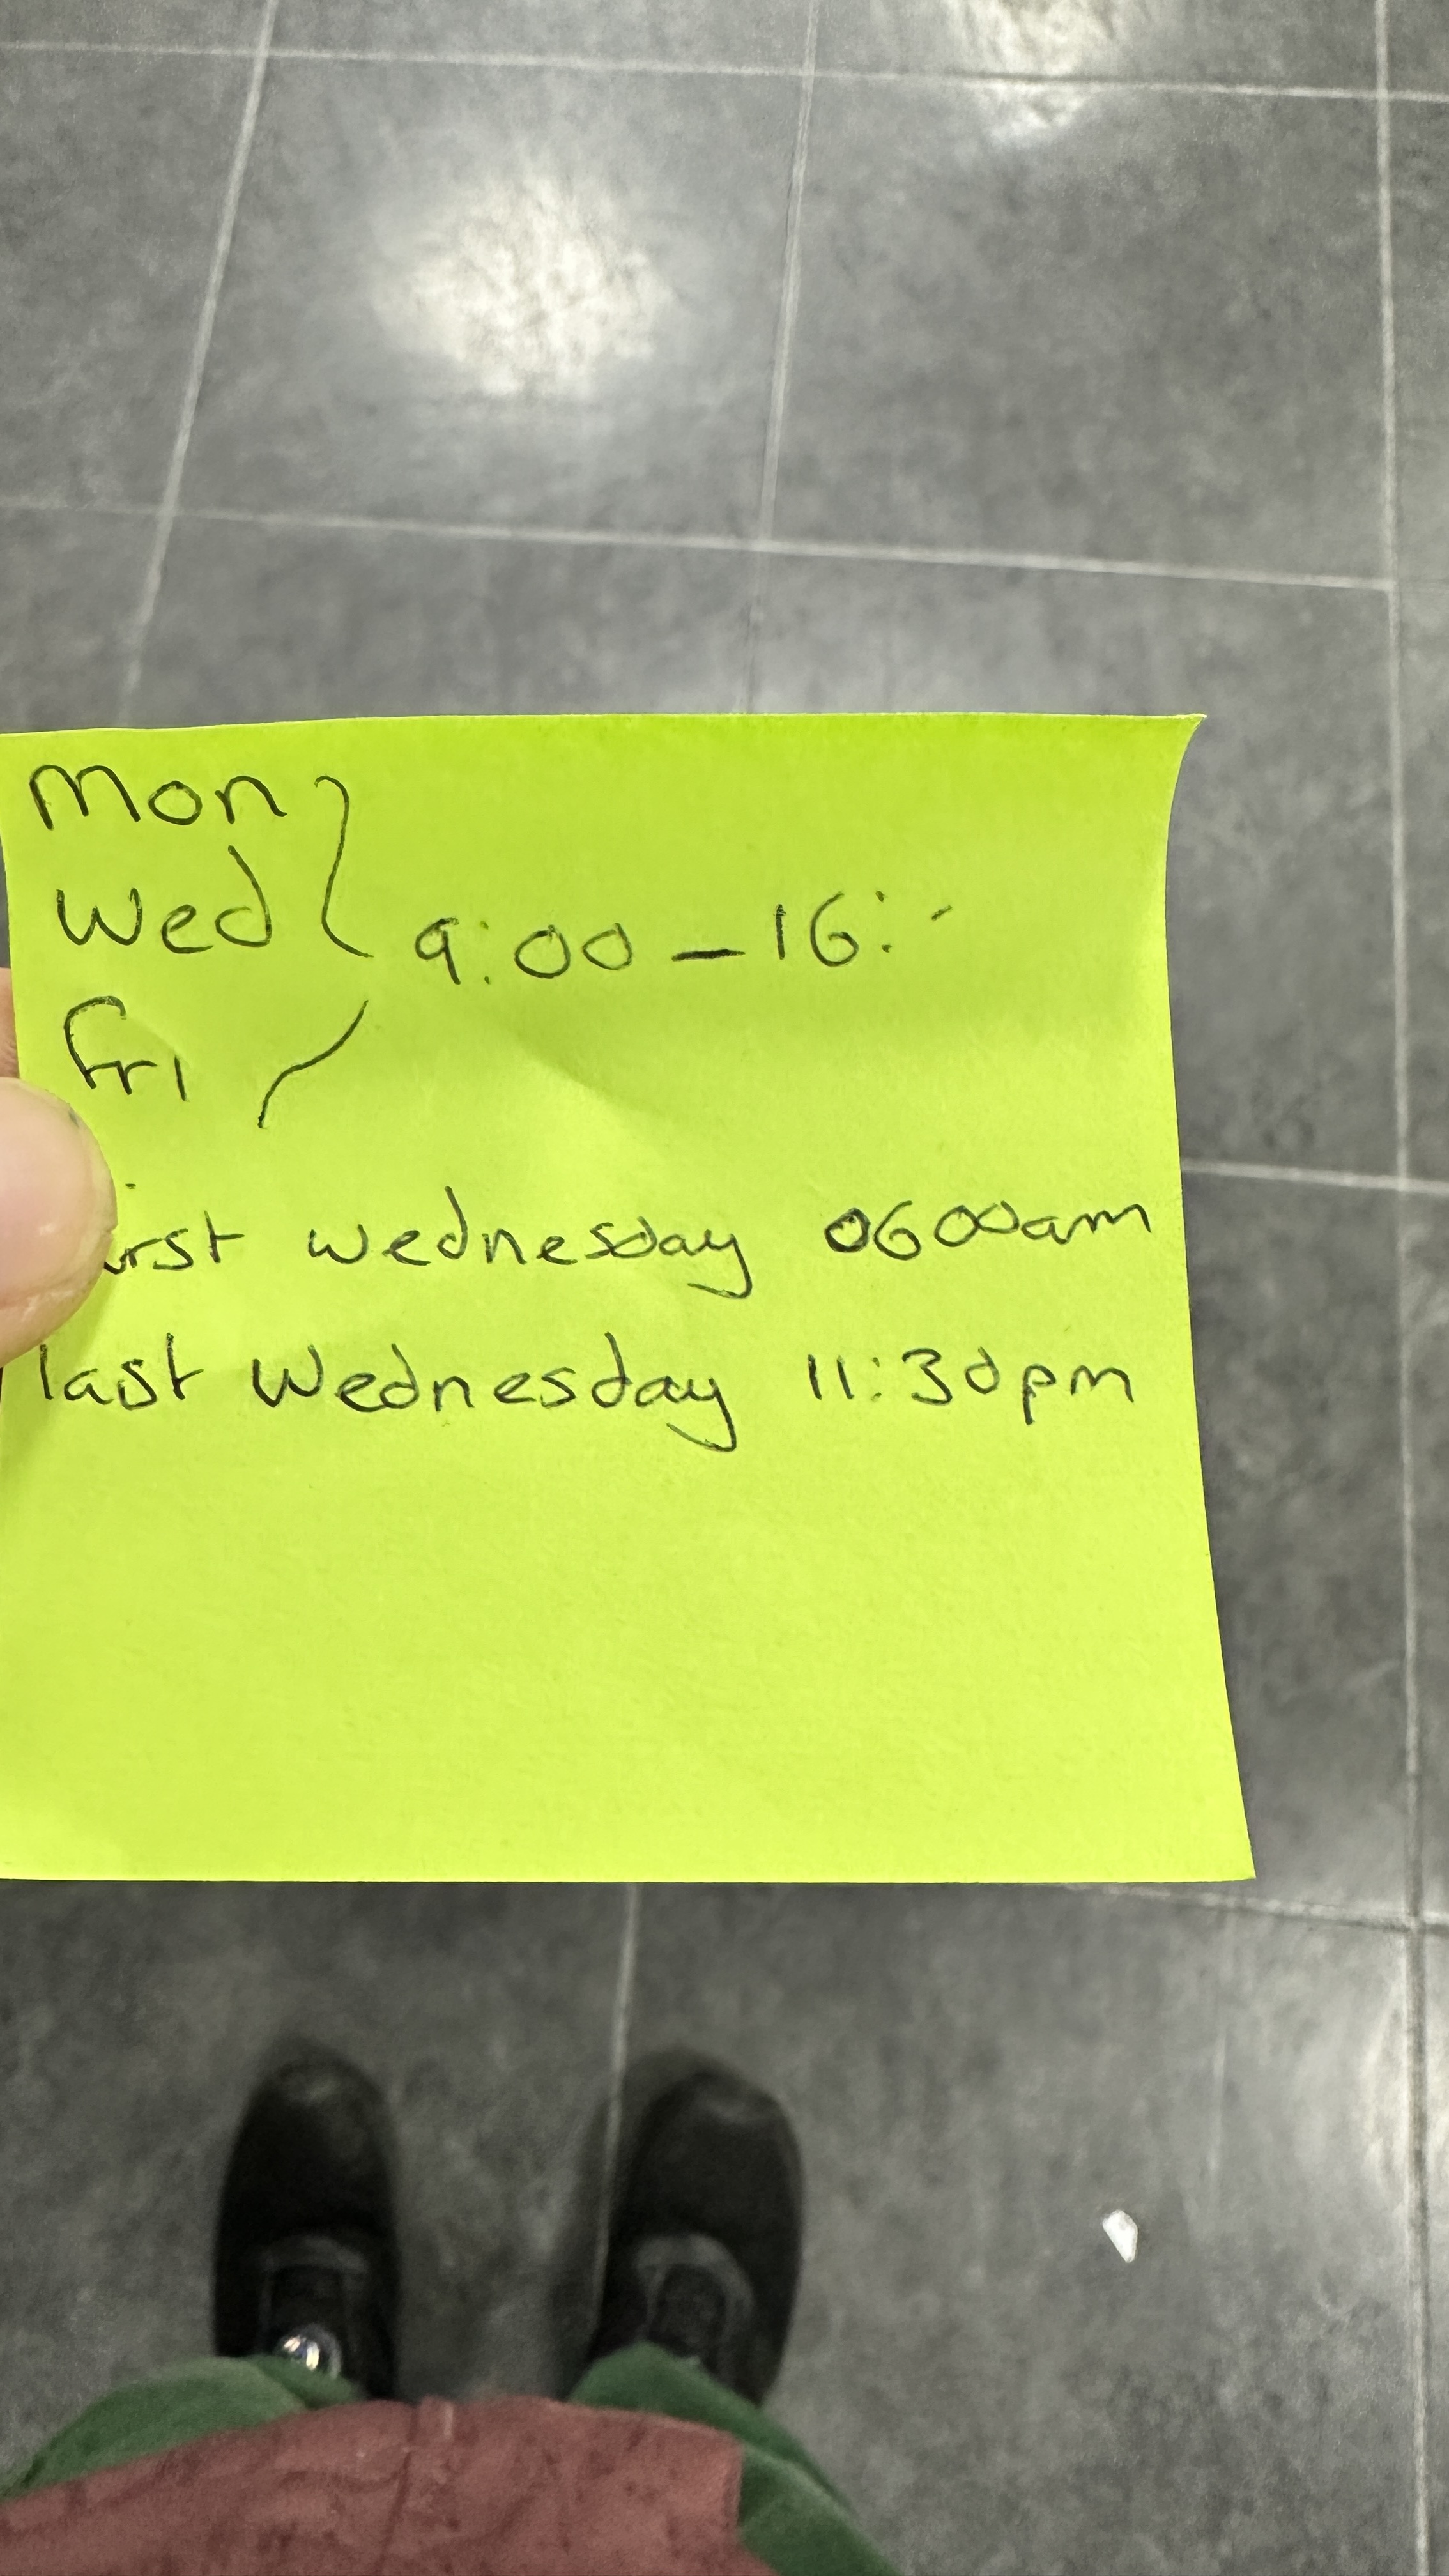 Mon
Wed
Fri
9:00 – 16:
wednesday 0600am
last Wednesday 11:30pm